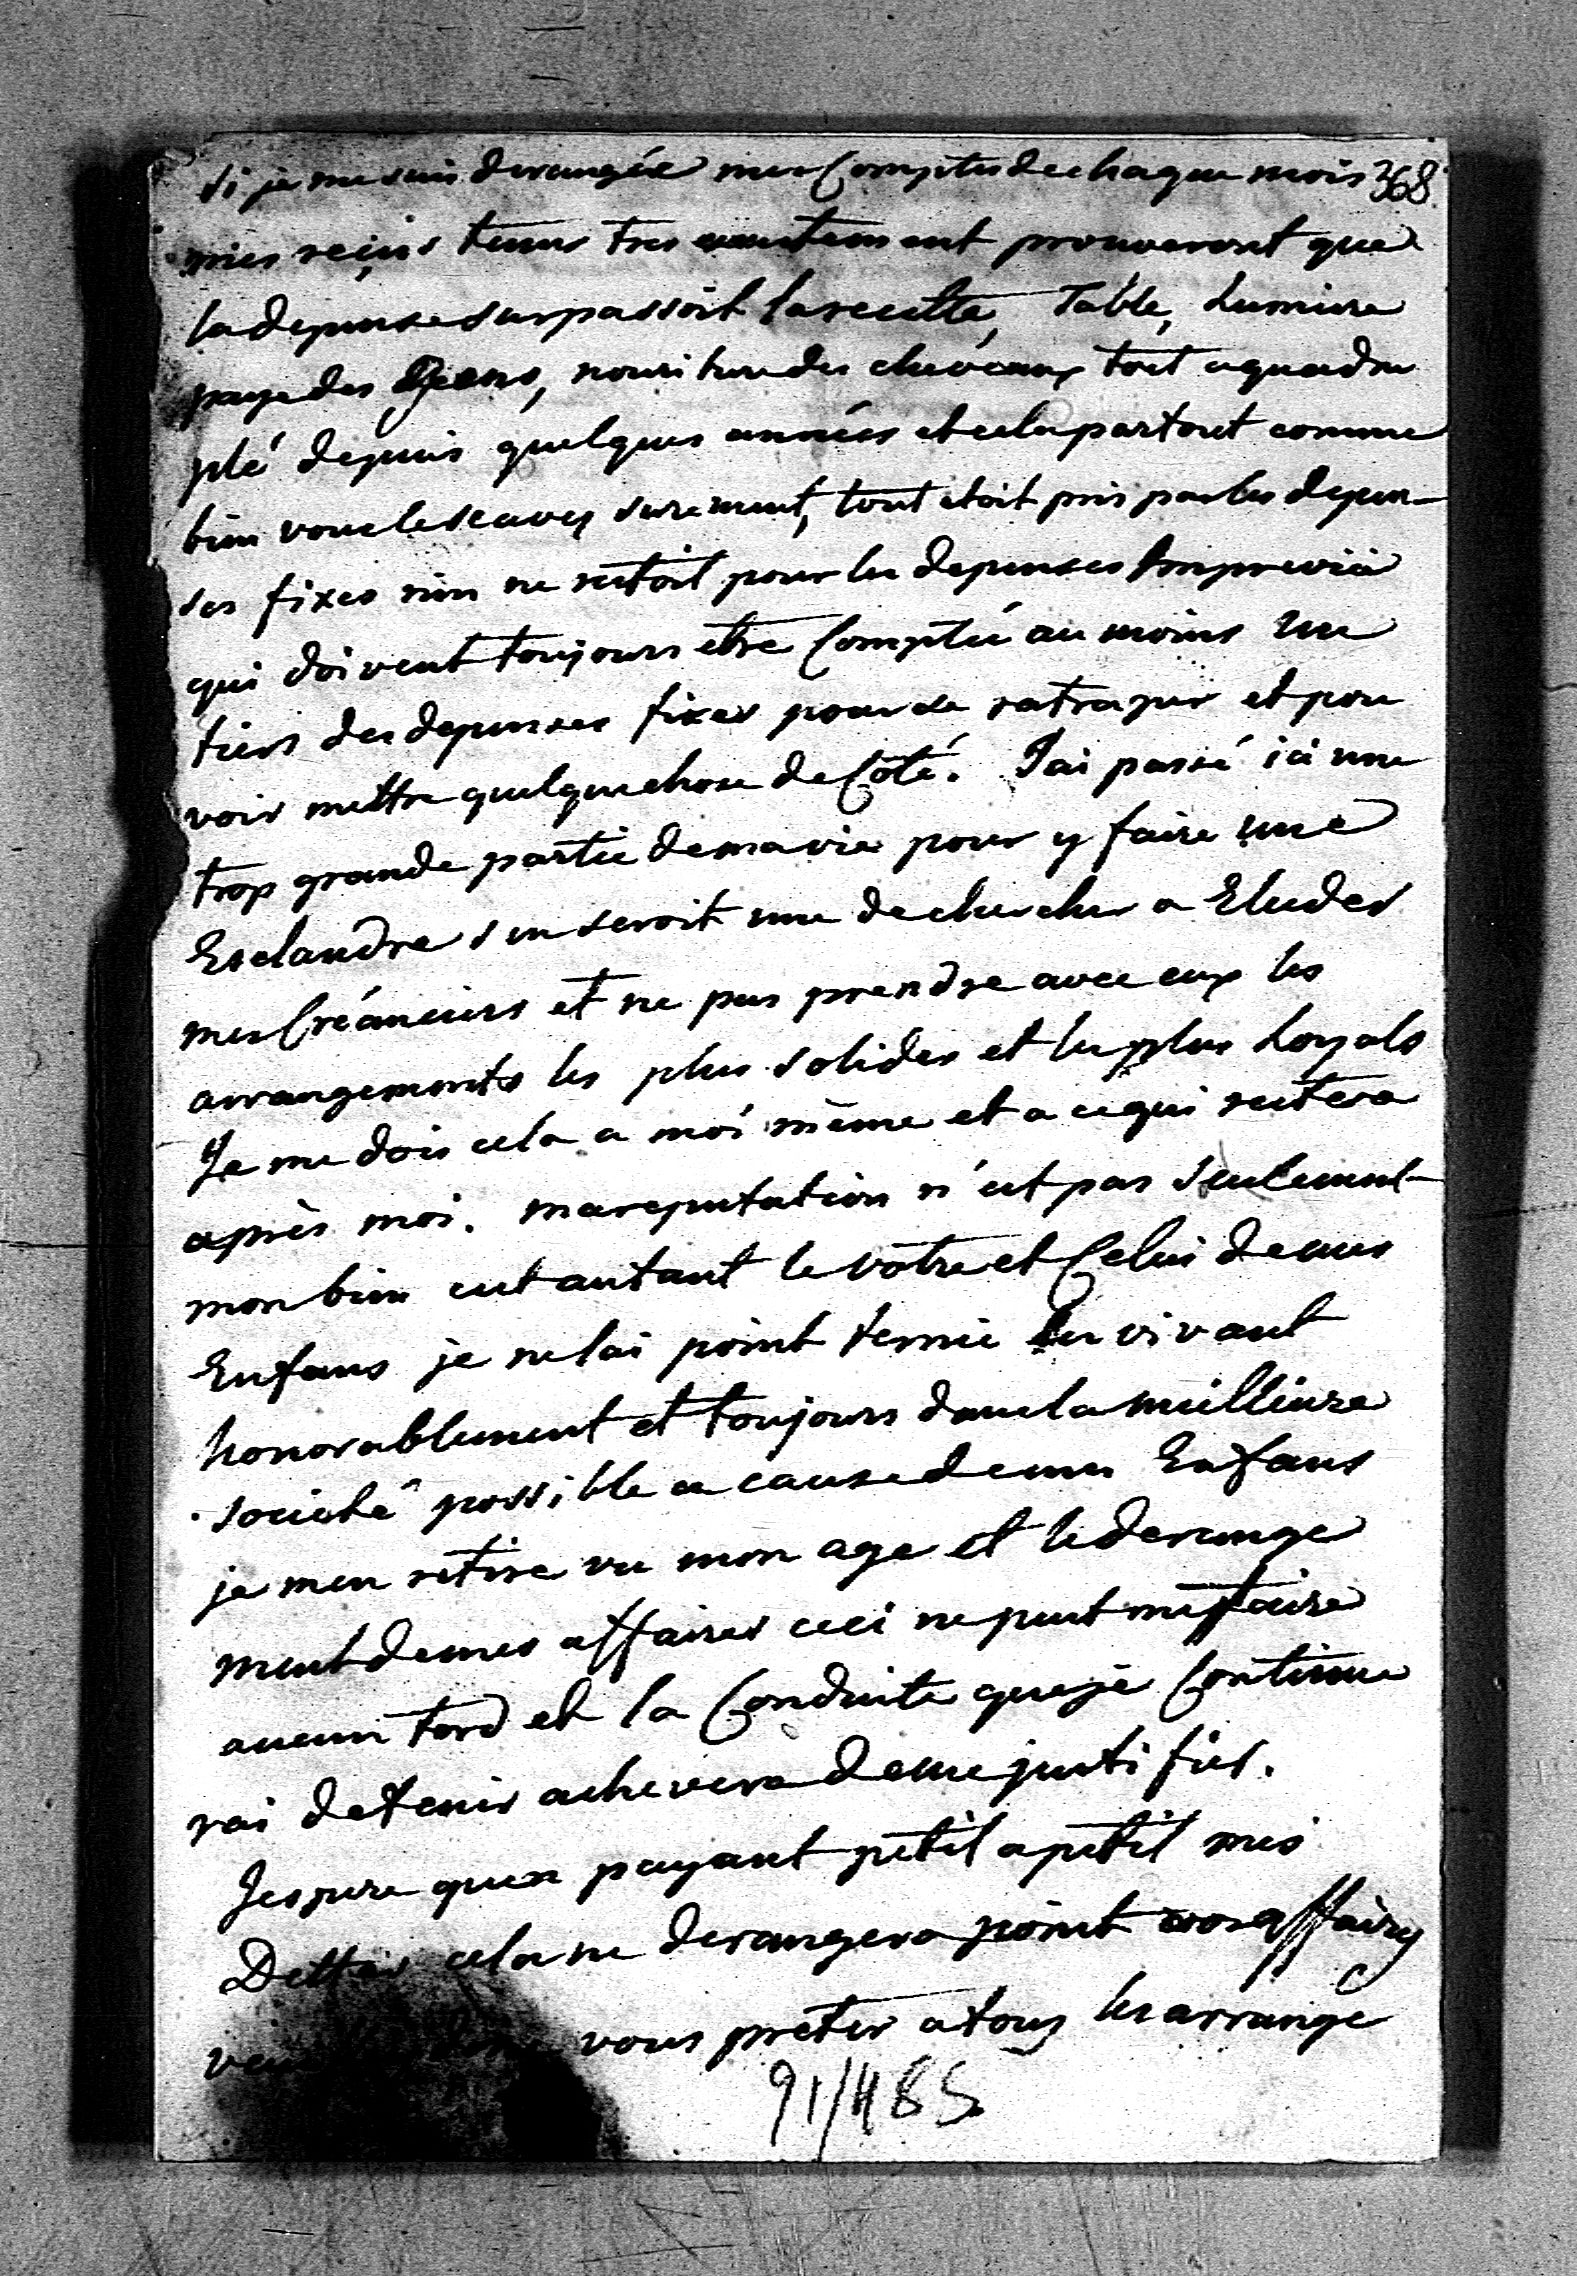 si je me suis derangée mes Comptes de chaque mois 368
mes reçus tenus tres exactement prouveront que
la depense surpassoit la recette, Table, Lumiere
paye des Gens, nouriture des chevéaux tout a quadru
plé depuis quelques années et cela partout comme
bien vous le scavez surement, tout etoit pris par les depen-
ses fixes rien ne restoit pour les depenses Imprevuë
qui doivent toujours etre Compteé au moins Un
tiers des depenses fixes pour se ratraper et pou
voir mettre quelque chose de Côté. J'ai passé ici une
trop grande partie de ma vie pour y faire une
Esclandre s'en seroit une de chercher a Eluder
mes Créanciers et ne pas prendre avec eux les
arrangements les plus solides et les plus Loyals
Je me dois cela a moi même et a ce qui restera
après moi. ma reputation n'est pas seulement
mon bien c'est autant le vôtre et Celui de mes
Enfans je ne lai point ternie En vivant
honorablement et toujours dans la meilleure
societé possible a cause de mes Enfans
je men retire vu mon age et le derange
ment de mes affaires ceci ne peut me faire
aucun tord et la Conduite que je Continue
rai de tenir achevera de me justifier.
Jespere quen payant petit a petit mes
Dettes cela ne derangera point vos affaires
vous preter a tous les arrange
91/485